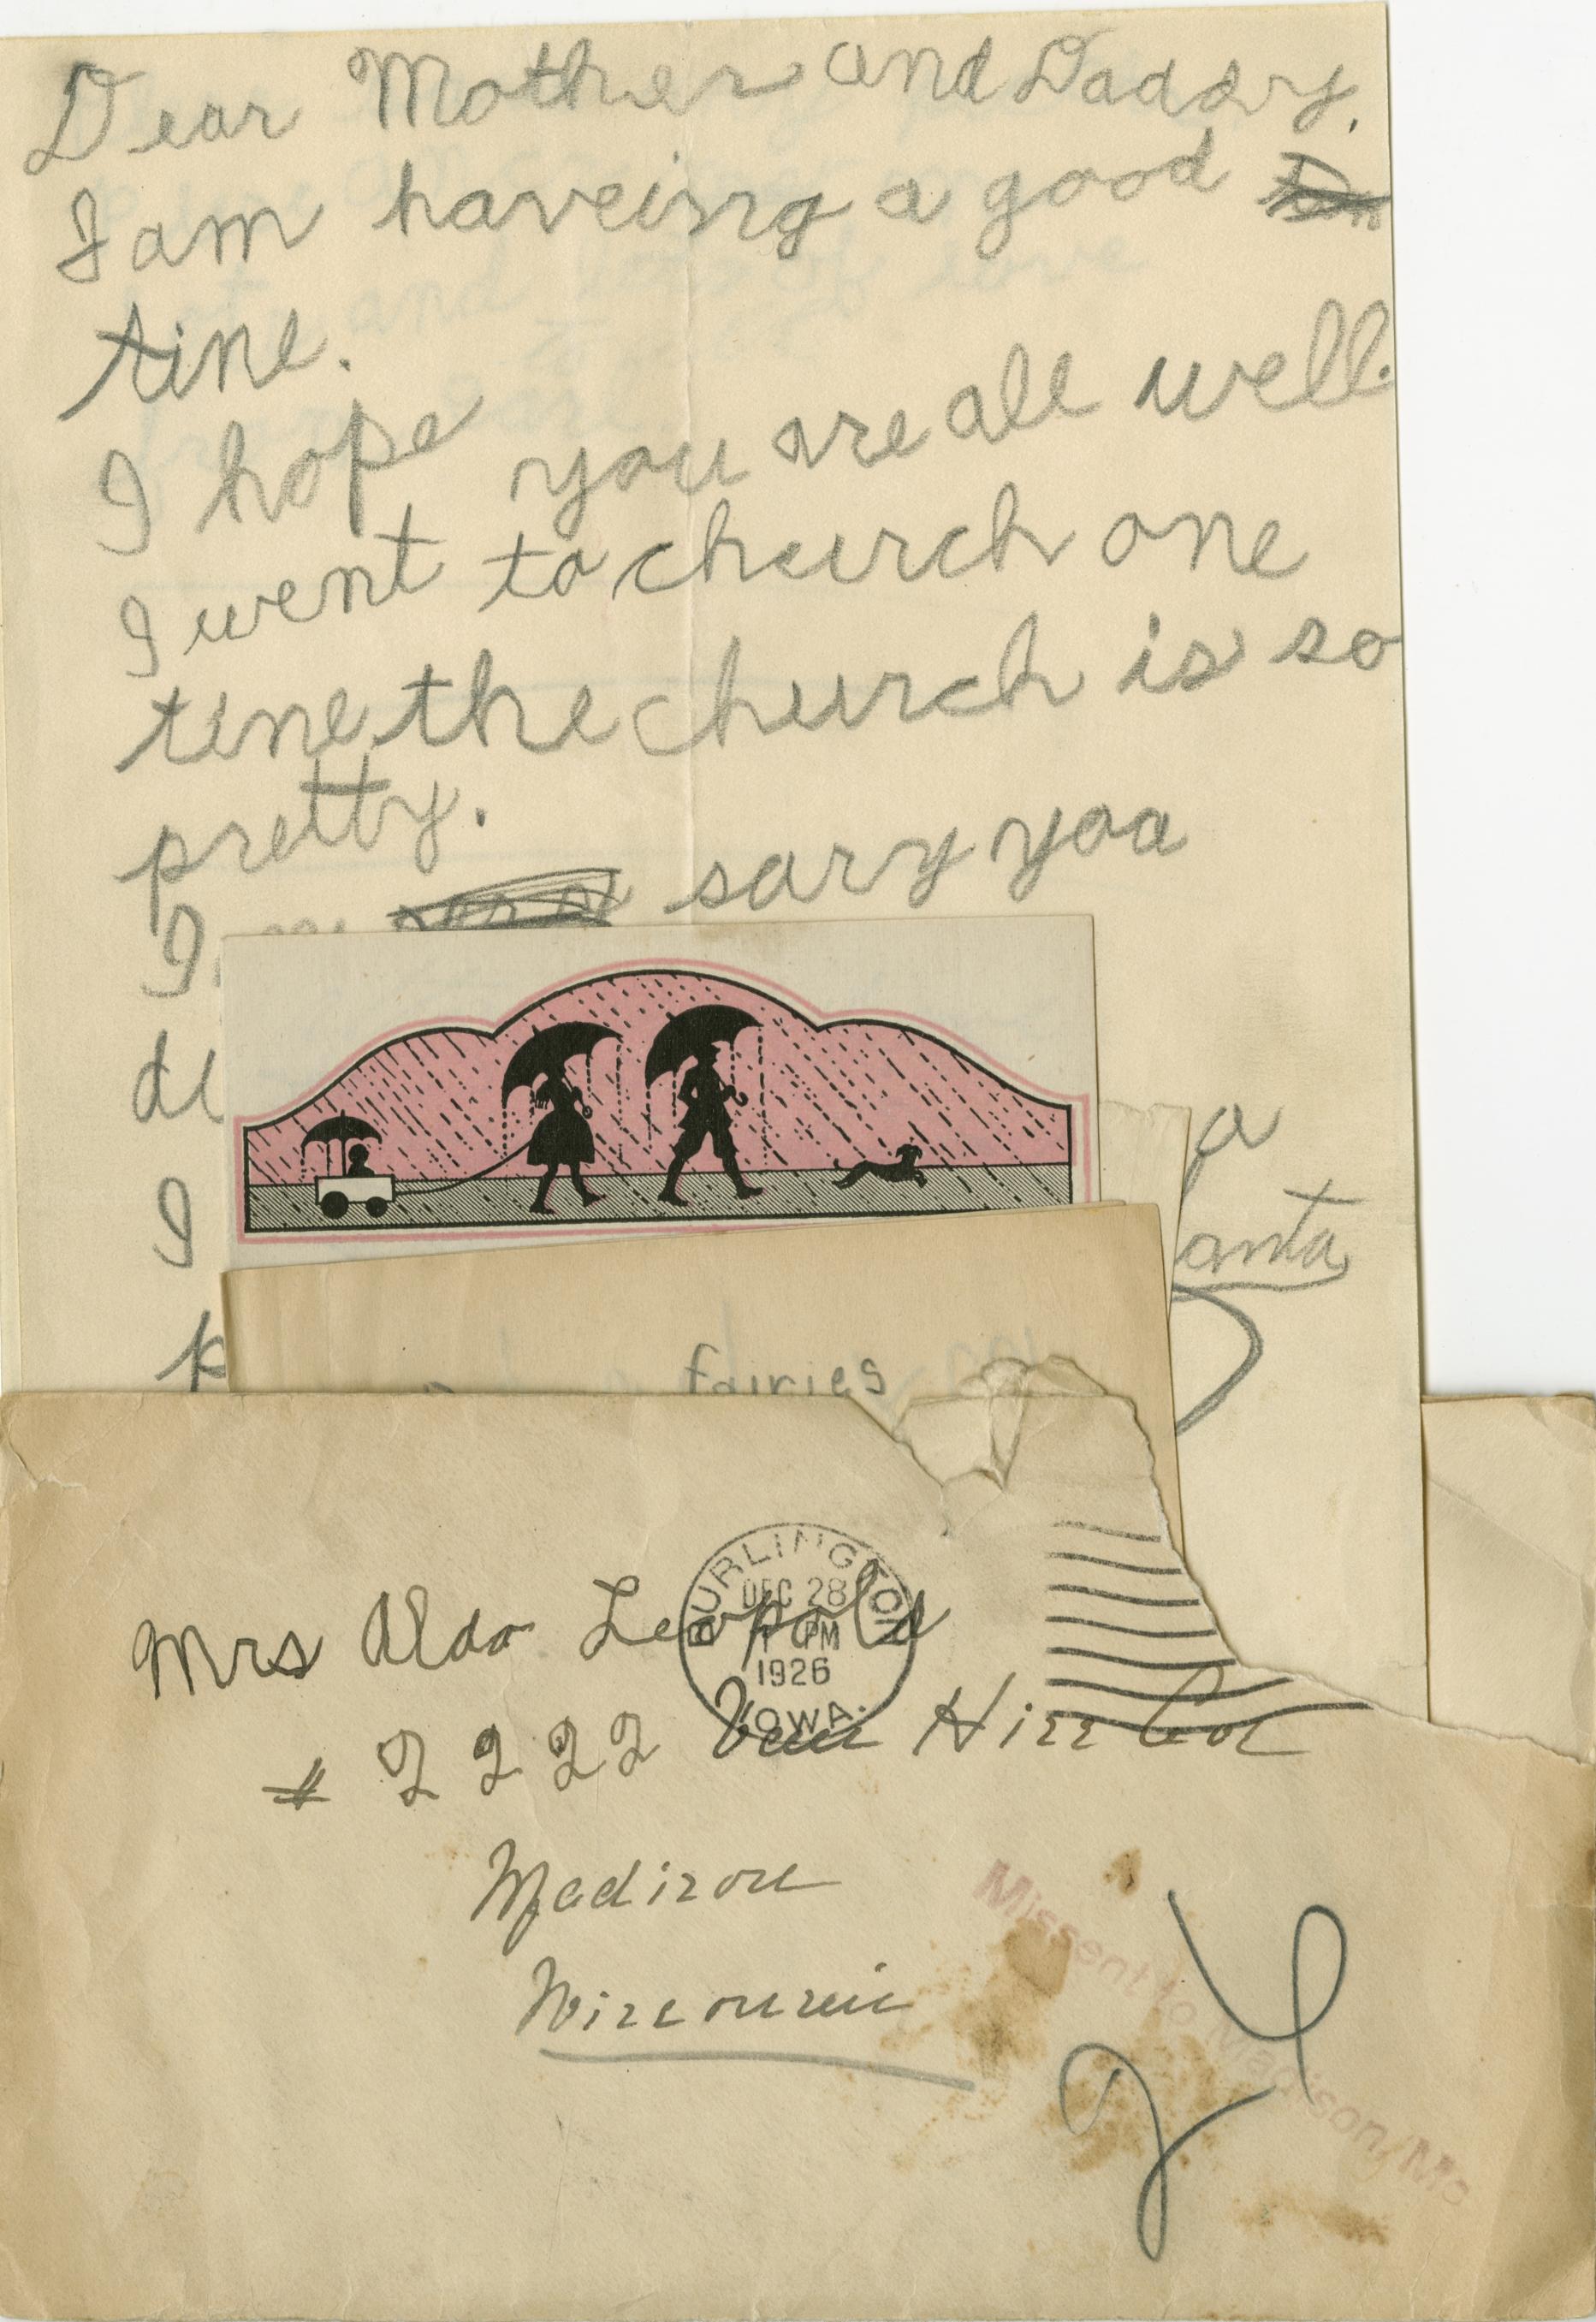 Dear Mother and Daddy,
I am haveing a good
tine.
I hope you are all well.
I went to church one
tine, the church is so
pretty.
I sary you
de
a
I anta
p
fairies
BURLINGTON
DEC 28
PM
1926
IOWA.
Mrs Aldo Leopold
# 2222 Van Hise
Madison
Wisconsin
Missent to Madison, Mo